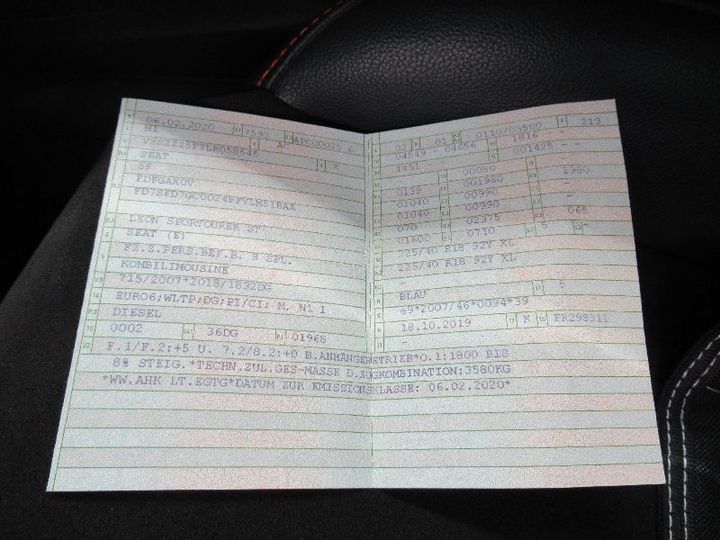 06.02.2020 7593
M1
SEAT
5F
FDFGAX0V
LEON SPORTOURER ST
SEAT (E)
FZ.Z.PERS.BEF.B. 8 SPL.
KOMBILIMOUSINE
715/2007*2018/1832DG
EURO6;WLTP;DG;PI/CI; M, N1 I
DIESEL
0002 36DG 01968
02 01 0110/03500 213
04549 04656 1816 -
1451 001425 -
- 00080 -
0139 001980 1980
01040 00990 -
01040 00990 -
070 02375 - 065
01600 0710 5 -
225/40 R18 92Y XL
225/40 R18 92Y XL
-
BLAU 5
e9*2007/46*0094*39
18.10.2019 K FR298311
F.1/F.2:+5 U. 7.2/8.2:+0 B.ANHÄNGEBETRIEB*O.1:1800 BIS
8% STEIG.*TECHN.ZUL.GES-MASSE D.ZUGKOMBINATION:3580KG
*WW.AHK LT.EGTG*DATUM ZUR EMISSIONSKLASSE: 06.02.2020*